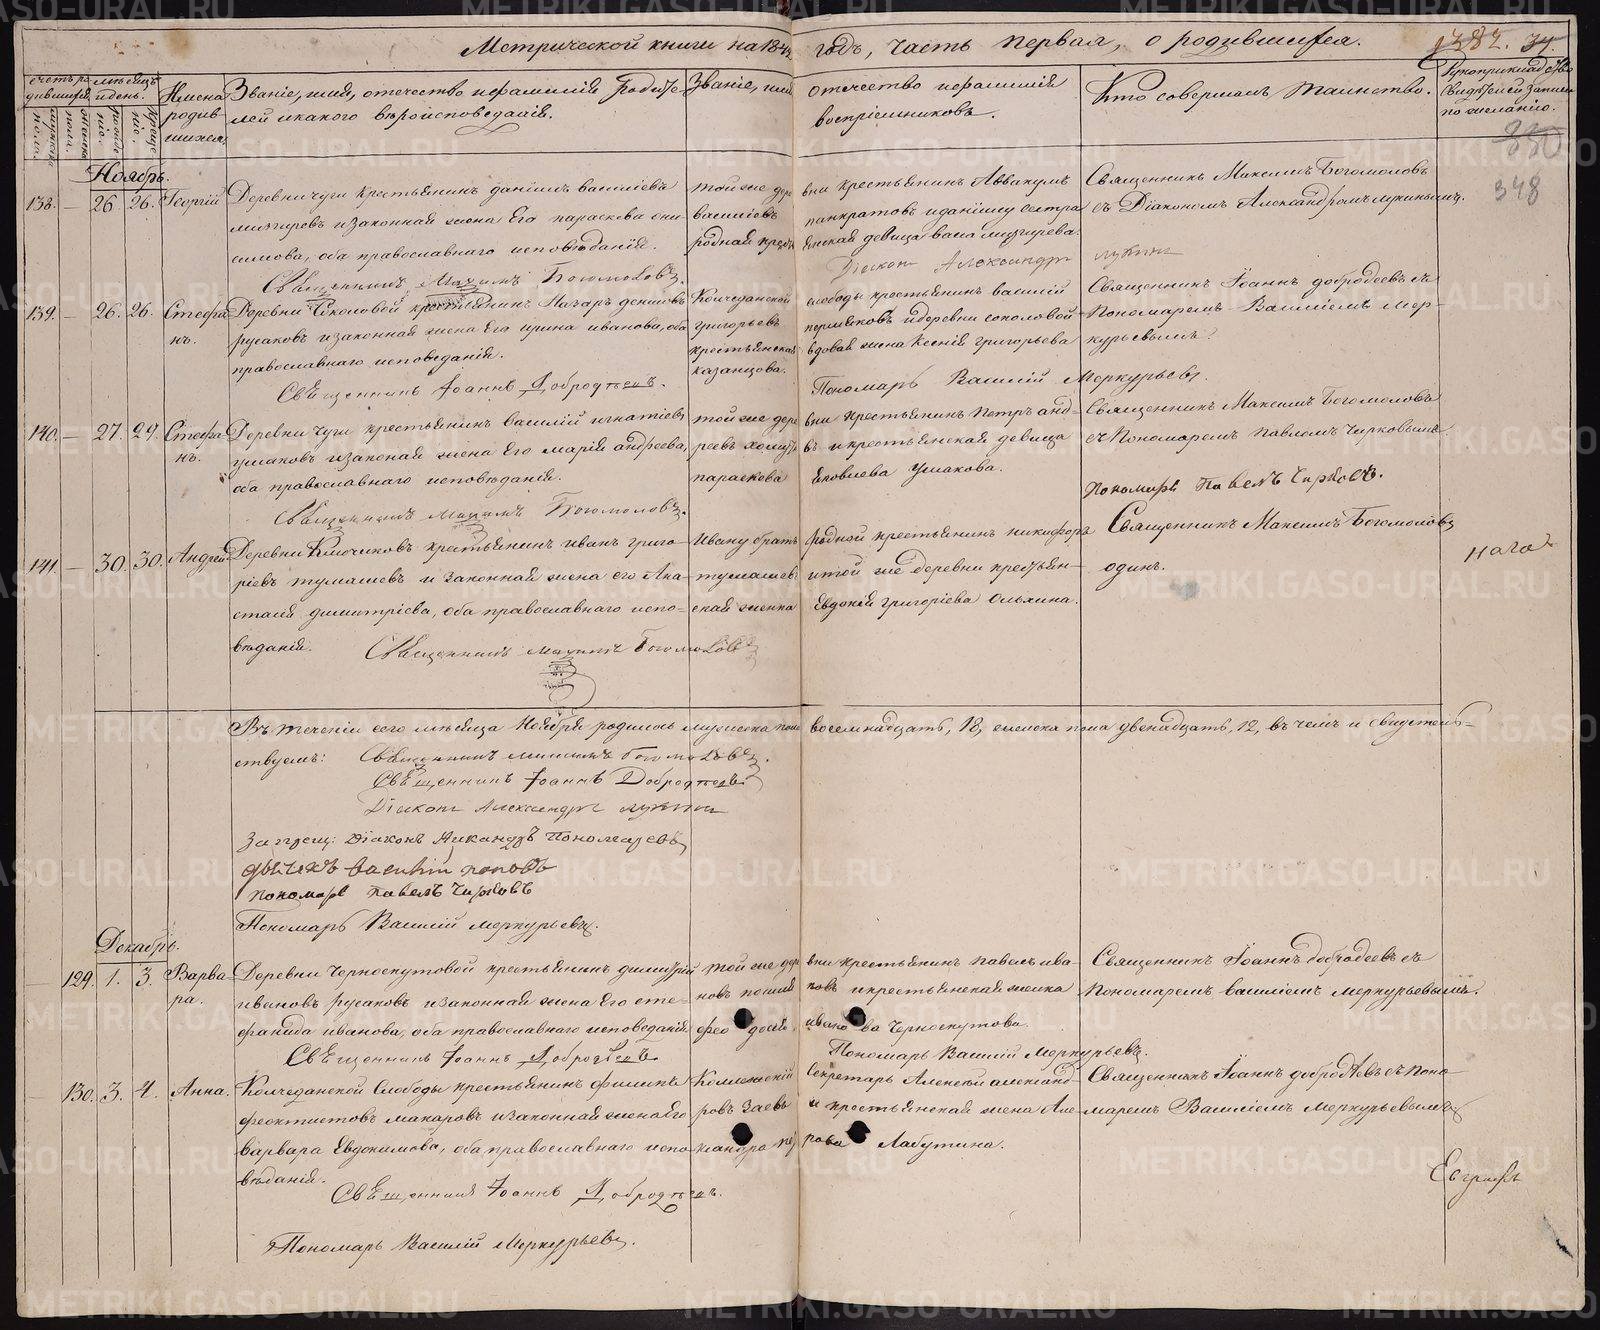 Метрической книги на 184 годъ, часть первая, о родившихся.
1382. 34.
счетъ родившихся мѣсяцъ и день.
мужеска пола. женска пола. рожденія. крещенія.
Имена родившихся.
Званіе, имя, отечество и фамилія родителей и какого вѣроисповеданія.
Званіе, имя отечество и фамилія воспріемниковъ.
Кто совершалъ таинство.
Рукоприкладство свидѣтелей записи по желанію.
830
348
Ноябрь.
138. — 26 26. Георгій
Деревни Чуги крестьянинъ Даніилъ Василіевъ
и законная жена его Параскова
оба православнаго исповѣданія.
Священникъ Максимъ Богомоловъ.
той же деревни крестьянинъ Аввакумъ
Василіевъ Панкратовъ и Даніилу сестра
родная крестьянская девица Васса
Священникъ Максимъ Богомоловъ
съ Діакономъ Александромъ Лукинымъ.
Діаконъ Александръ Лукинъ
139. — 26. 26. Стефанъ.
Деревни Соколовой крестьянинъ Назаръ Денисовъ
Русаковъ и законная жена его Ирина Иванова, оба
православнаго исповеданія.
Священникъ Іоаннъ Добродѣевъ.
Колчеданской слободы крестьянинъ Василій
Григорьевъ Пермяковъ и деревни Соколовой
крестьянская вдовая жена Ксенія Григорьева
Казанцова.
Священникъ Іоаннъ Добродеевъ съ
Пономаремъ Василіемъ Меркурьевымъ.
Пономарь Василій Меркурьевъ.
140. — 27. 29. Стефанъ.
Деревни Чуги крестьянинъ Василій Игнатіевъ
Ушаковъ и законная жена его Марія Андреева,
оба православнаго исповѣданія.
Священникъ Максимъ Богомоловъ.
той же деревни крестьянинъ Петръ Андреевъ
и крестьянская девица
Параскова Яковлева Ушакова.
Священникъ Максимъ Богомоловъ
съ Пономаремъ Павломъ Чирковымъ.
Пономарь Павелъ Чирковъ.
141. — 30. 30. Андрей
Деревни Ключиковъ крестьянинъ Иванъ Григоріевъ
Тумашевъ и законная жена его Анастасія
Димитріева, оба православнаго исповѣданія.
Священникъ Максимъ Богомоловъ
Ивану братъ родной крестьянинъ Никифоръ
Тумашевъ и той же деревни крестьянская
женка Евдокія Григоріева Ольхина.
Священникъ Максимъ Богомоловъ
одинъ.
Въ теченіи сего мѣсяца Ноября родилось мужеска пола восемнадцать, 18, женска пола двенадцать, 12, въ чемъ и свидетельствуемъ:
Священникъ Максимъ Богомоловъ.
Священникъ Іоаннъ Добродѣевъ
Діаконъ Александръ Лукинъ
Діаконъ Никандръ Пономаревъ
дьячекъ Василій Поповъ
Пономарь Павелъ Чирковъ
Пономарь Василій Меркурьевъ.
Декабрь.
129. 1. 3. Варвара.
Деревни Черноскутовой крестьянинъ Димитрій
Ивановъ Русаковъ и законная жена его Стефанида
Иванова, оба православнаго исповеданія
Священникъ Іоаннъ Добродѣевъ
той же деревни крестьянинъ Павелъ Ивановъ
и крестьянская женка
Феодосія Иванова Черноскутова.
Священникъ Іоаннъ Добродеевъ съ
Пономаремъ Василіемъ Меркурьевымъ.
Пономарь Василій Меркурьевъ.
130. 3. 4. Анна.
Колчеданской Слободы крестьянинъ Филиппъ
Феоктистовъ Макаровъ и законная жена его
Варвара Евдокимова, оба православнаго исповѣданія.
Священникъ Іоаннъ Добродѣевъ.
Коллежскій Секретарь Алексей Александровъ
и крестьянская жена
Лабутина.
Священникъ Іоаннъ Добродѣевъ съ Пономаремъ
Василіемъ Меркурьевымъ
Пономарь Василій Меркурьевъ.
Евграфъ
METRIKI.GASO-URAL.RU